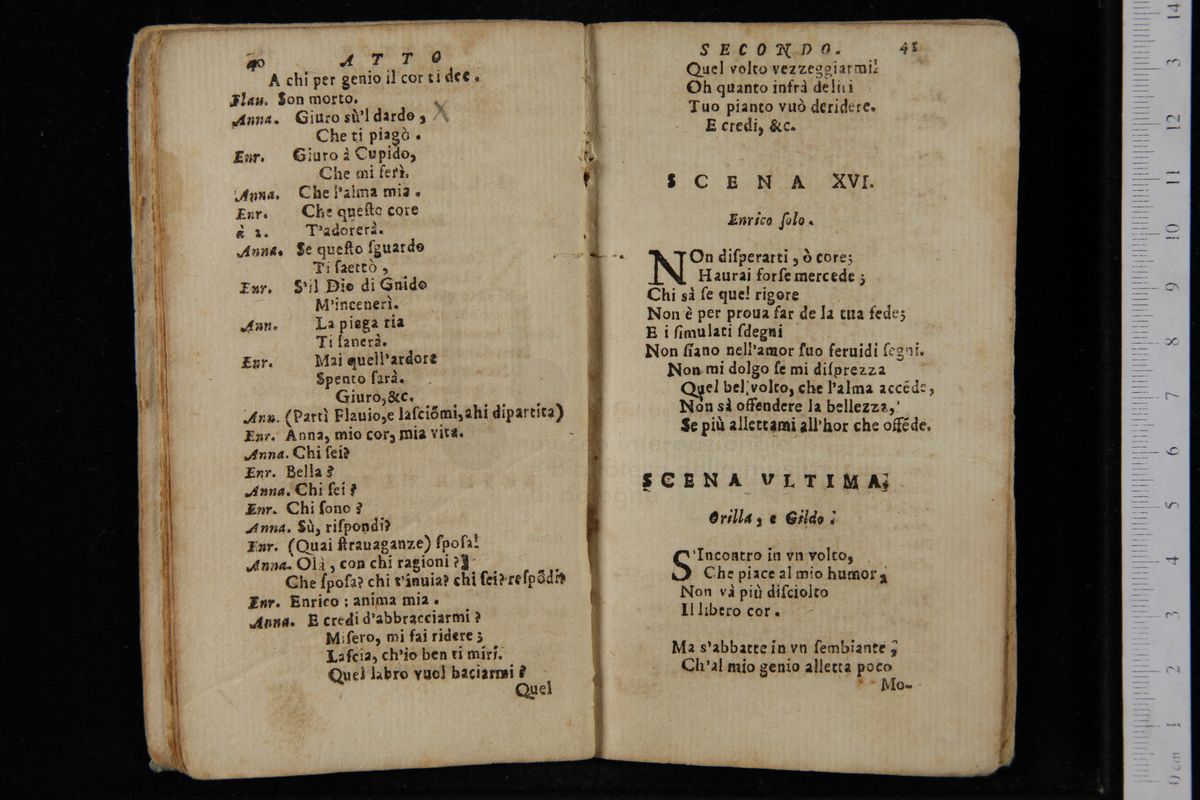 40 ATTO
A chi per genio il cor ti dee.
Flau. Son morto.
Anna. Giuro sù'l dardo,
Che ti piagò.
Enr. Giuro à Cupido,
Che mi ferì.
Anna. Che l'alma mia.
Enr. Che queſto core
à 2. T'adorerà.
Anna. Se queſto ſguardo
Ti ſaettò,
Enr. S'il Dio di Gnido
M'incenerì.
Ann. La piaga ria
Ti ſanerà.
Enr. Mai quell'ardore
Spento ſarà.
Giuro, &c.
Ann. (Partì Flauio, e laſciõmi, ahi dipartita)
Enr. Anna, mio cor, mia vita.
Anna. Chi ſei?
Enr. Bella?
Anna. Chi ſei?
Enr. Chi ſono?
Anna. Sù, riſpondi?
Enr. (Quai ſtrauaganze) ſpoſa!
Anna. Olà, con chi ragioni?
Che ſpoſa? chi t'inuia? chi ſei? reſpõdi?
Enr. Enrico: anima mia.
Anna. E credi d'abbracciarmi?
Miſero, mi fai ridere;
Laſcia, ch'io ben ti miri.
Quel labro vuol baciarmi?
Quel
SECONDO. 41
Quel volto vezzeggiarmi?
Oh quanto infrà deliri
Tuo pianto vuò deridere.
E credi, &c.
SCENA XVI.
Enrico ſolo.
NOn diſperarti, ò core;
Haurai forſe mercede;
Chi sà ſe quel rigore
Non è per proua far de la tua fede;
E i ſimulati ſdegni
Non ſiano nell'amor ſuo feruidi ſegni.
Non mi dolgo ſe mi diſprezza
Quel bel volto, che l'alma accẽde,
Nòn sà offendere la bellezza,
Se più allettami all'hor che offẽde.
SCENA VLTIMA.
Orilla, e Gildo.
S'Incontro in vn volto,
Che piace al mio humor,
Non và più diſciolto
Il libero cor.
Ma s'abbatte in vn ſembiante,
Ch'al mio genio alletta poco
Mo-